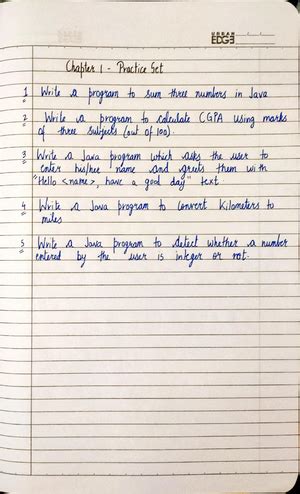 EDGE
Chapter 1 - Practice Set
1 Write a program to sum three numbers in Java
2 Write a program to calculate CGPA using marks
of three subjects (out of 100).
3 Write a Java program which asks the user to
enter his/her name and greets them with
"Hello <name>, have a good day" text
4 Write a Java program to convert Kilometers to
miles
5 Write a Java program to detect whether a number
entered by the user is integer or not.